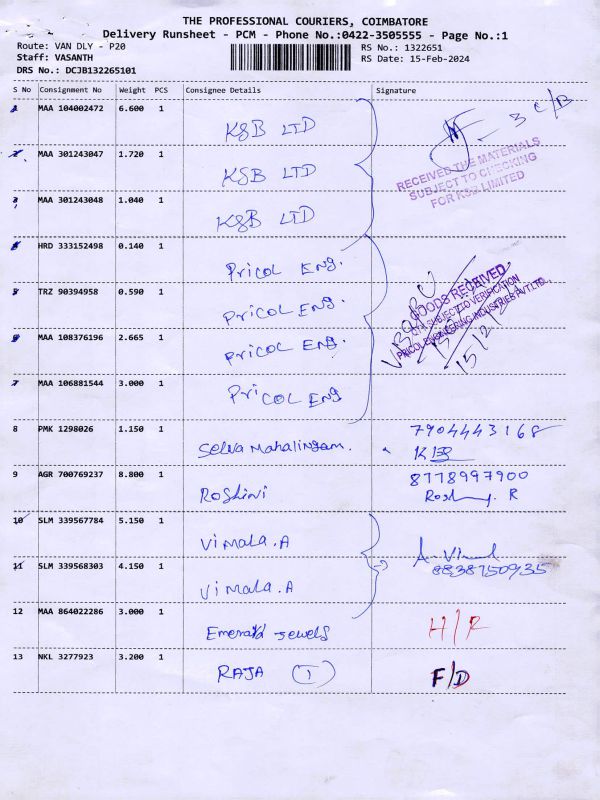 THE PROFESSIONAL COURIERS, COIMBATORE
Delivery Runsheet - PCM - Phone No.:0422-3505555 - Page No.:1
Route: VAN DLY - P20 RS No.: 1322651
Staff: VASANTH RS Date: 15-Feb-2024
DRS No.: DCJB132265101
S No Consignment No Weight PCS Consignee Details Signature
1 MAA 104002472 6.600 1 KSB LTD 3 C/B
2 MAA 301243047 1.720 1 KSB LTD
RECEIVED THE MATERIALS
SUBJECT TO CHECKING
FOR KSB LIMITED
3 MAA 301243048 1.040 1 KSB LTD
4 HRD 333152498 0.140 1 Pricol Eng.
5 TRZ 90394958 0.590 1 Pricol Eng.
GOODS RECEIVED
QTY. SUBJECT TO VERIFICATION
PRICOL ENGINEERING INDUSTRIES PVT LTD.,
6 MAA 108376196 2.665 1 Pricol Eng. 15/2/
7 MAA 106881544 3.000 1 Pricol Eng
8 PMK 1298026 1.150 1 Selva Mahalingam. 7904443168
9 AGR 700769237 8.800 1 Roshini 8778997900
R
10 SLM 339567784 5.150 1 Vimala.A
11 SLM 339568303 4.150 1 Vimala.A 8838750935
12 MAA 864022286 3.000 1 Emerald Jewels H/R
13 NKL 3277923 3.200 1 RAJA (I) F/D